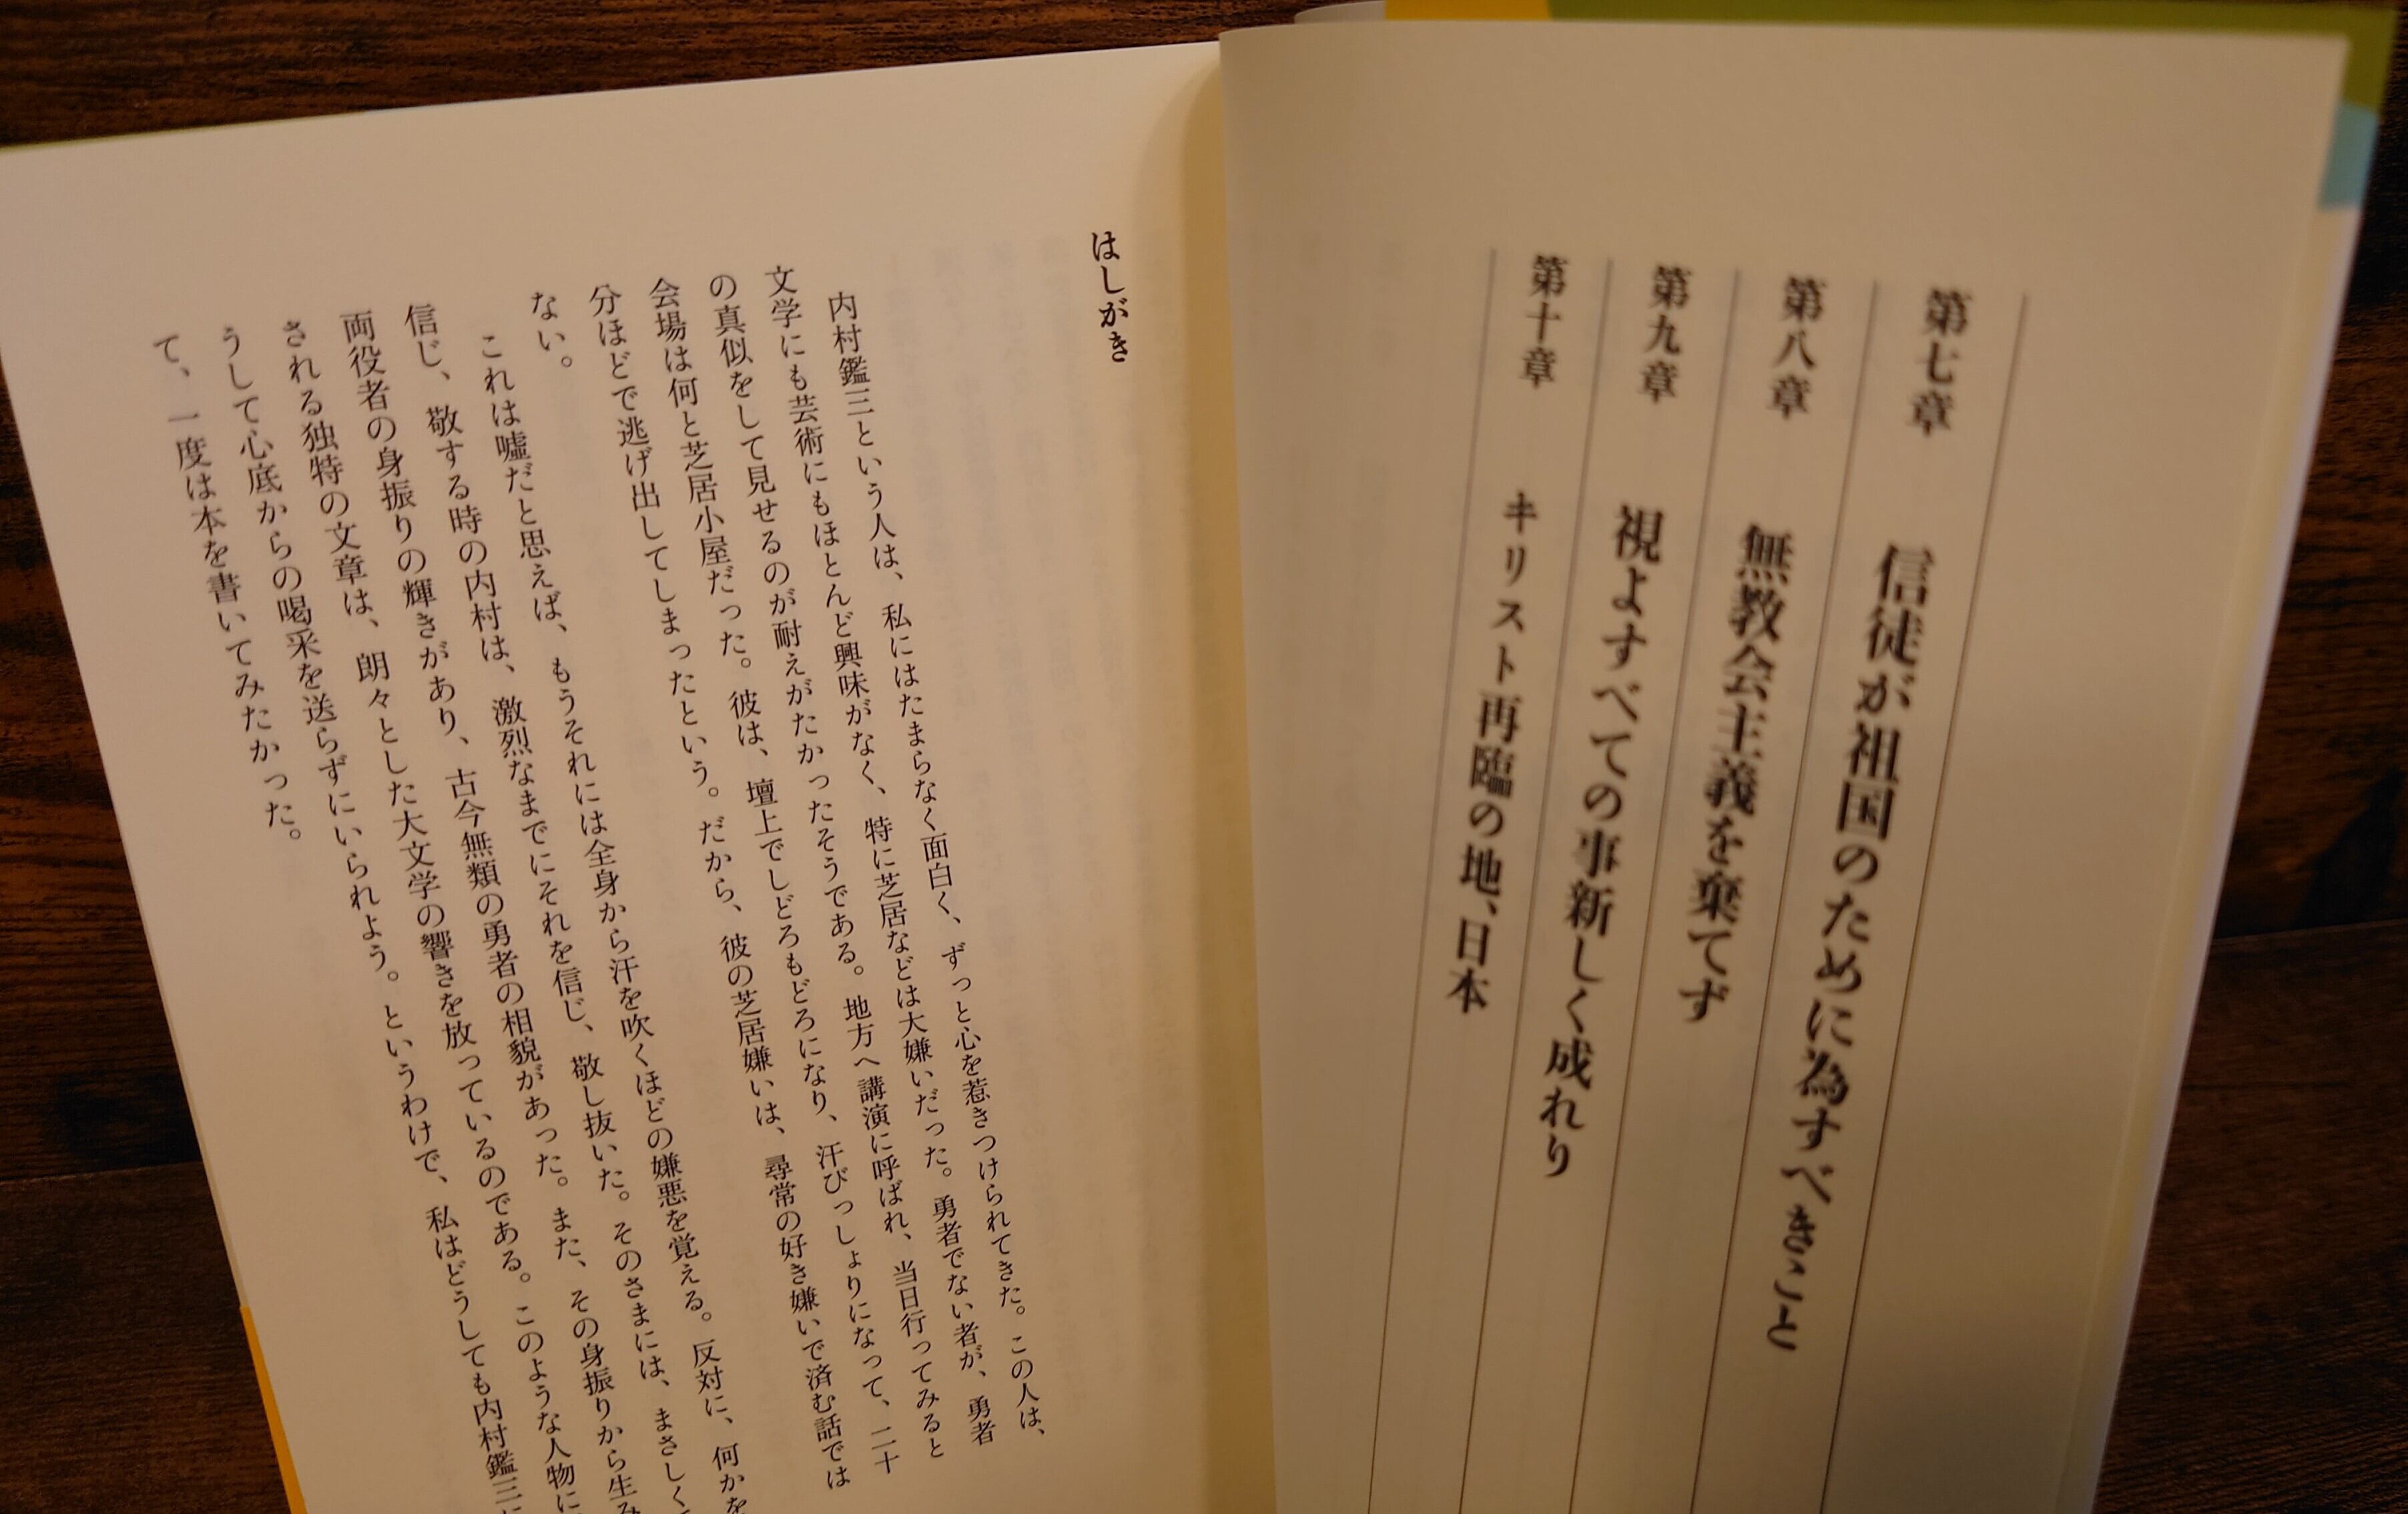 第七章 信徒が祖国のために為すべきこと
第八章 無教会主義を棄てず
第九章 視よすべての事新しく成れり
第十章 キリスト再臨の地、日本
はしがき
内村鑑三という人は、私にはたまらなく面白く、ずっと心を惹きつけられてきた。この人は、
文学にも芸術にもほとんど興味がなく、特に芝居などは大嫌いだった。勇者でない者が、勇者
の真似をして見せるのが耐えがたかったそうである。地方へ講演に呼ばれ、当日行ってみると
会場は何と芝居小屋だった。彼は、壇上でしどろもどろになり、汗びっしょりになって、二十
分ほどで逃げ出してしまったという。だから、彼の芝居嫌いは、尋常の好き嫌いで済む話では
ない。
これは嘘だと思えば、もうそれには全身から汗を吹くほどの嫌悪を覚える。反対に、何かを
信じ、敬する時の内村は、激烈なまでにそれを信じ、敬し抜いた。そのさまには、まさしく
両役者の身振りの輝きがあり、古今無類の勇者の相貌があった。また、その身振りから生み
される独特の文章は、朗々とした大文学の響きを放っているのである。このような人物に
うして心底からの喝采を送らずにいられよう。というわけで、私はどうしても内村鑑三に
て、一度は本を書いてみたかった。